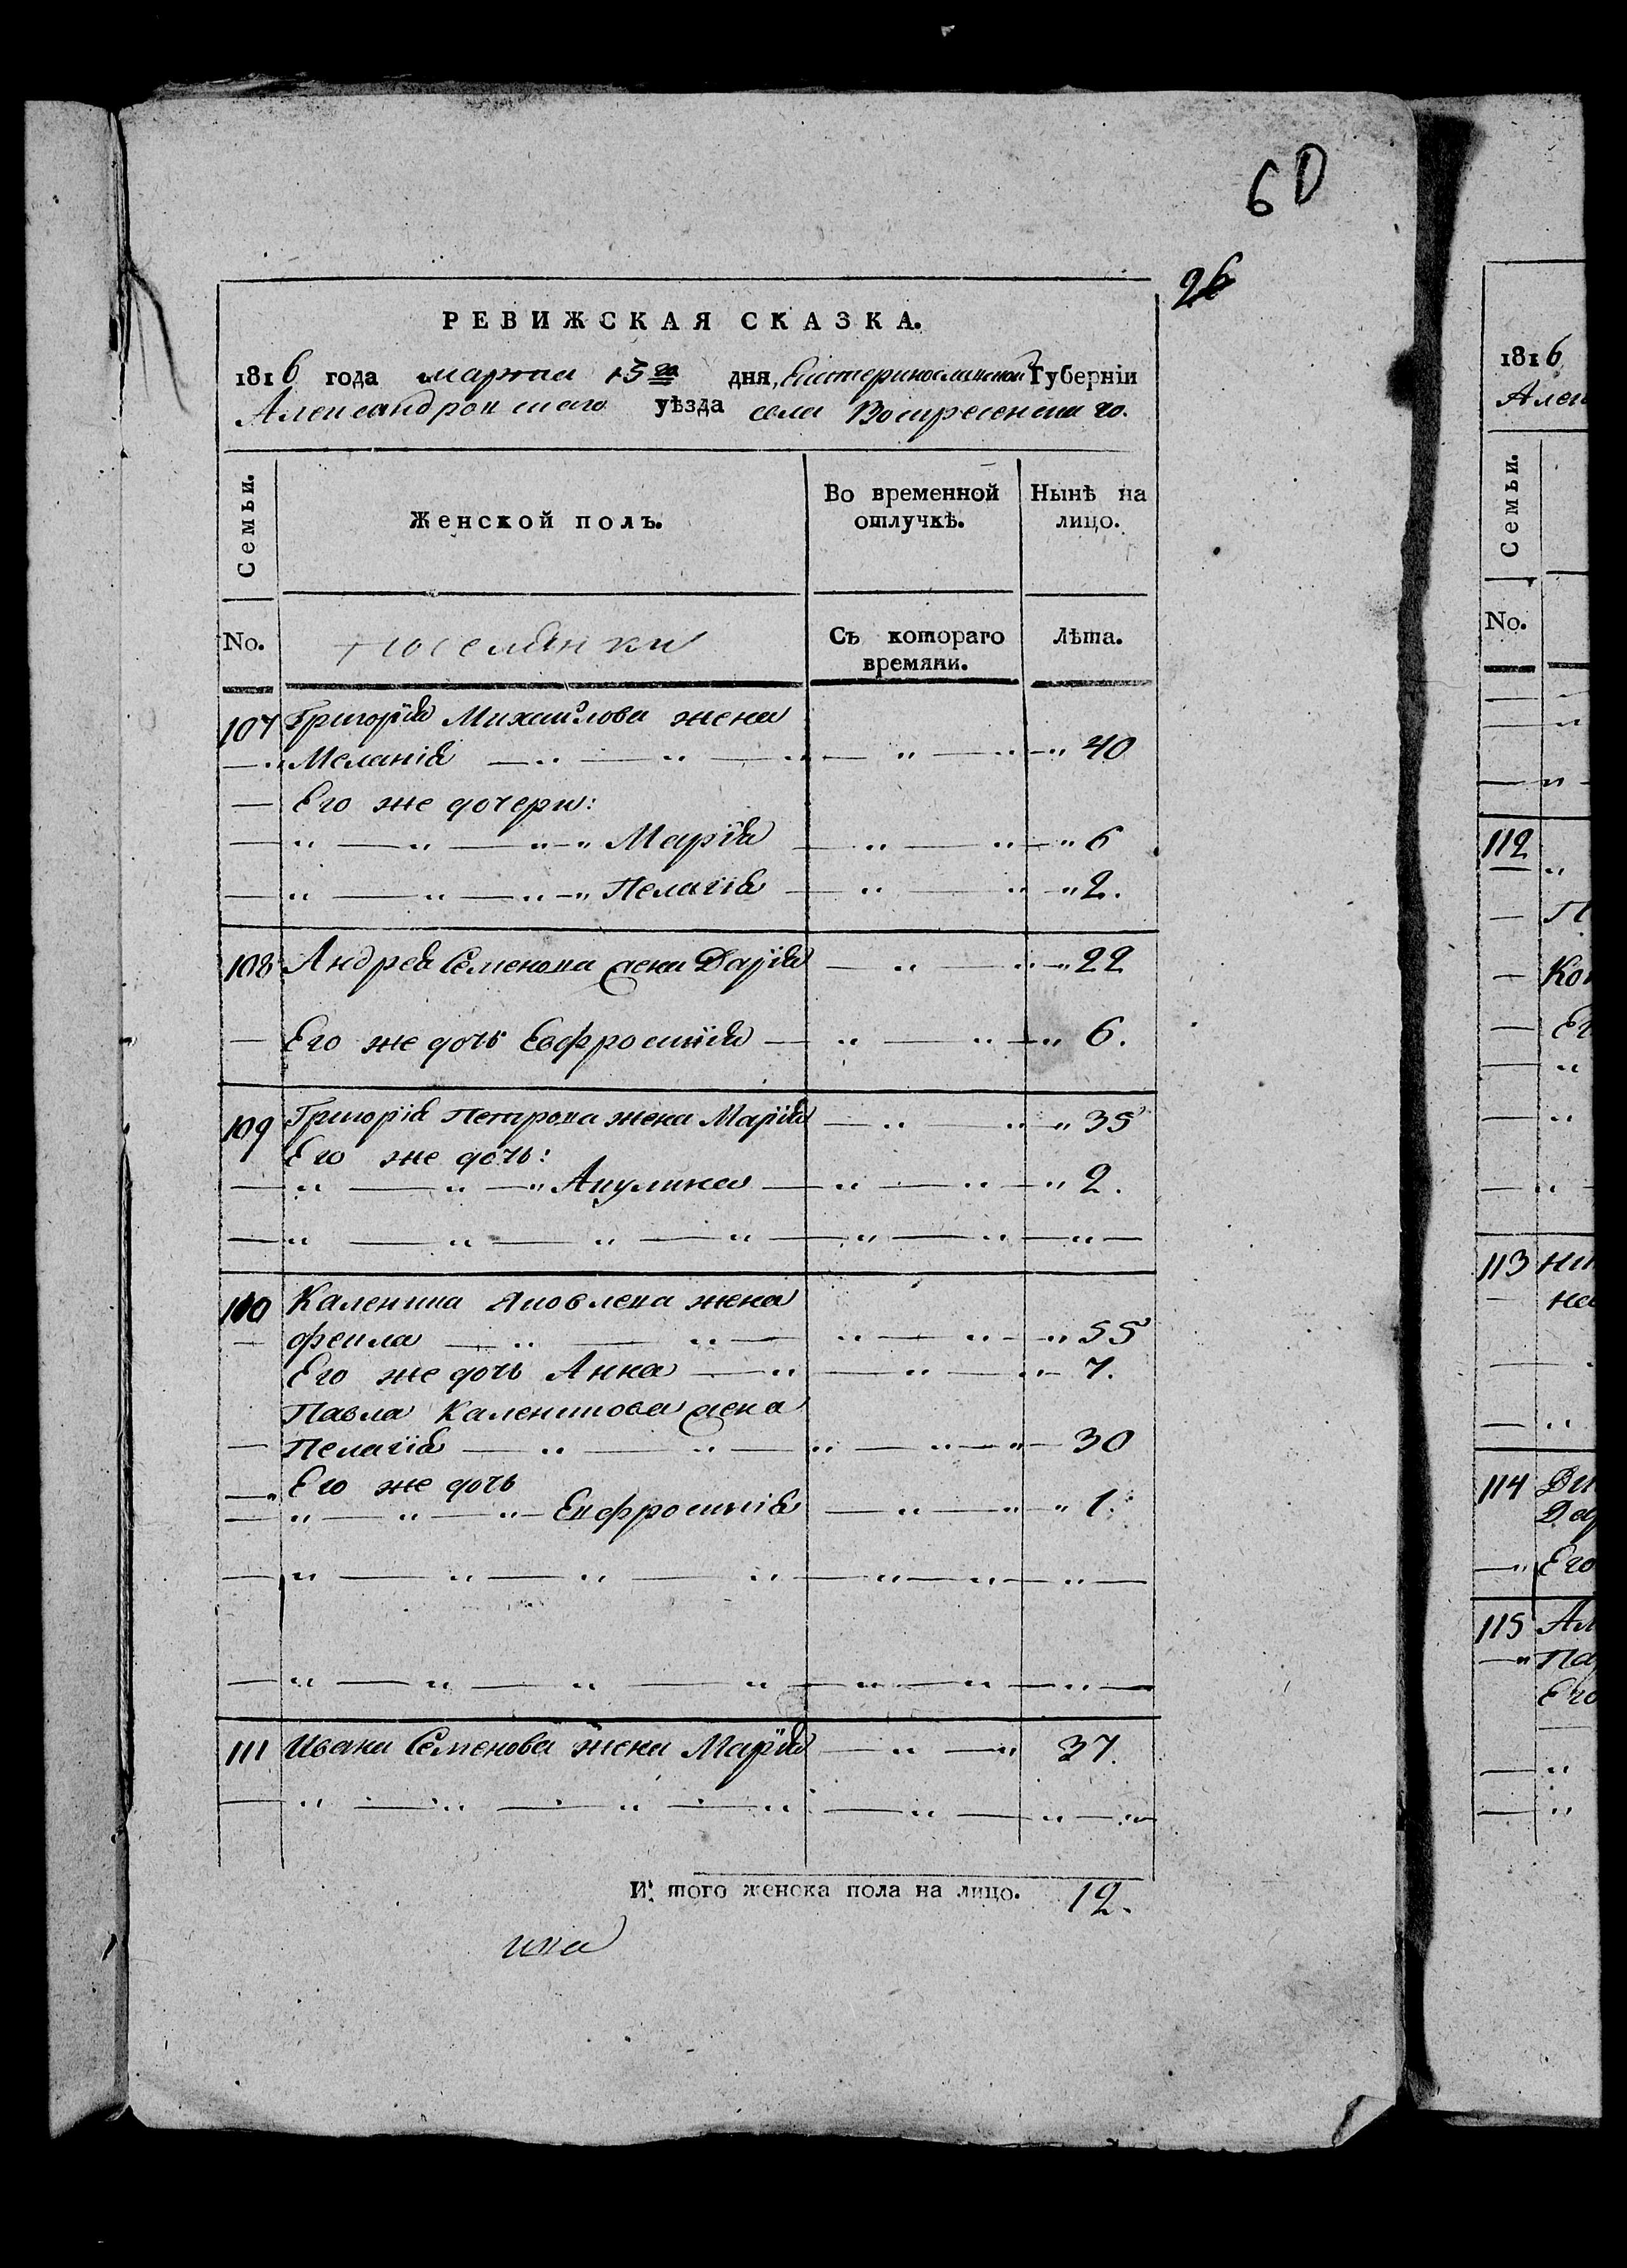 60
26
РЕВИЖСКАЯ СКАЗКА.
1816 года марта 15го дня, Екатеринославской Губерніи
Александровскаго уѣзда села Воскресенскаго.
Семьи.
Женской полъ.
Во временной отлучкѣ.
Нынѣ на лицо.
No.
поселянки
Съ котораго времяни.
Лѣта.
107 Григорія Михайлова жена
Меланія 40
Его же дочери:
Марія 6
Пелагія 2.
108 Андрея Семенова жена Дарія 22
Его же дочь Евфросинія 6.
109 Григорія Петрова жена Марія 35
Его же дочь:
Акулина 2.
110 Каленика Яковлева жена
Фекла 55
Его же дочь Анна 7.
Павла Каленикова жена
Пелагія 30
Его же дочь
Евфросинія 1.
111 Ивана Семенова жена Марія 37.
И того женска пола на лицо. 12.
1816
Алек
Семьи.
No.
112
П
Его
113
114
Его
115
Его